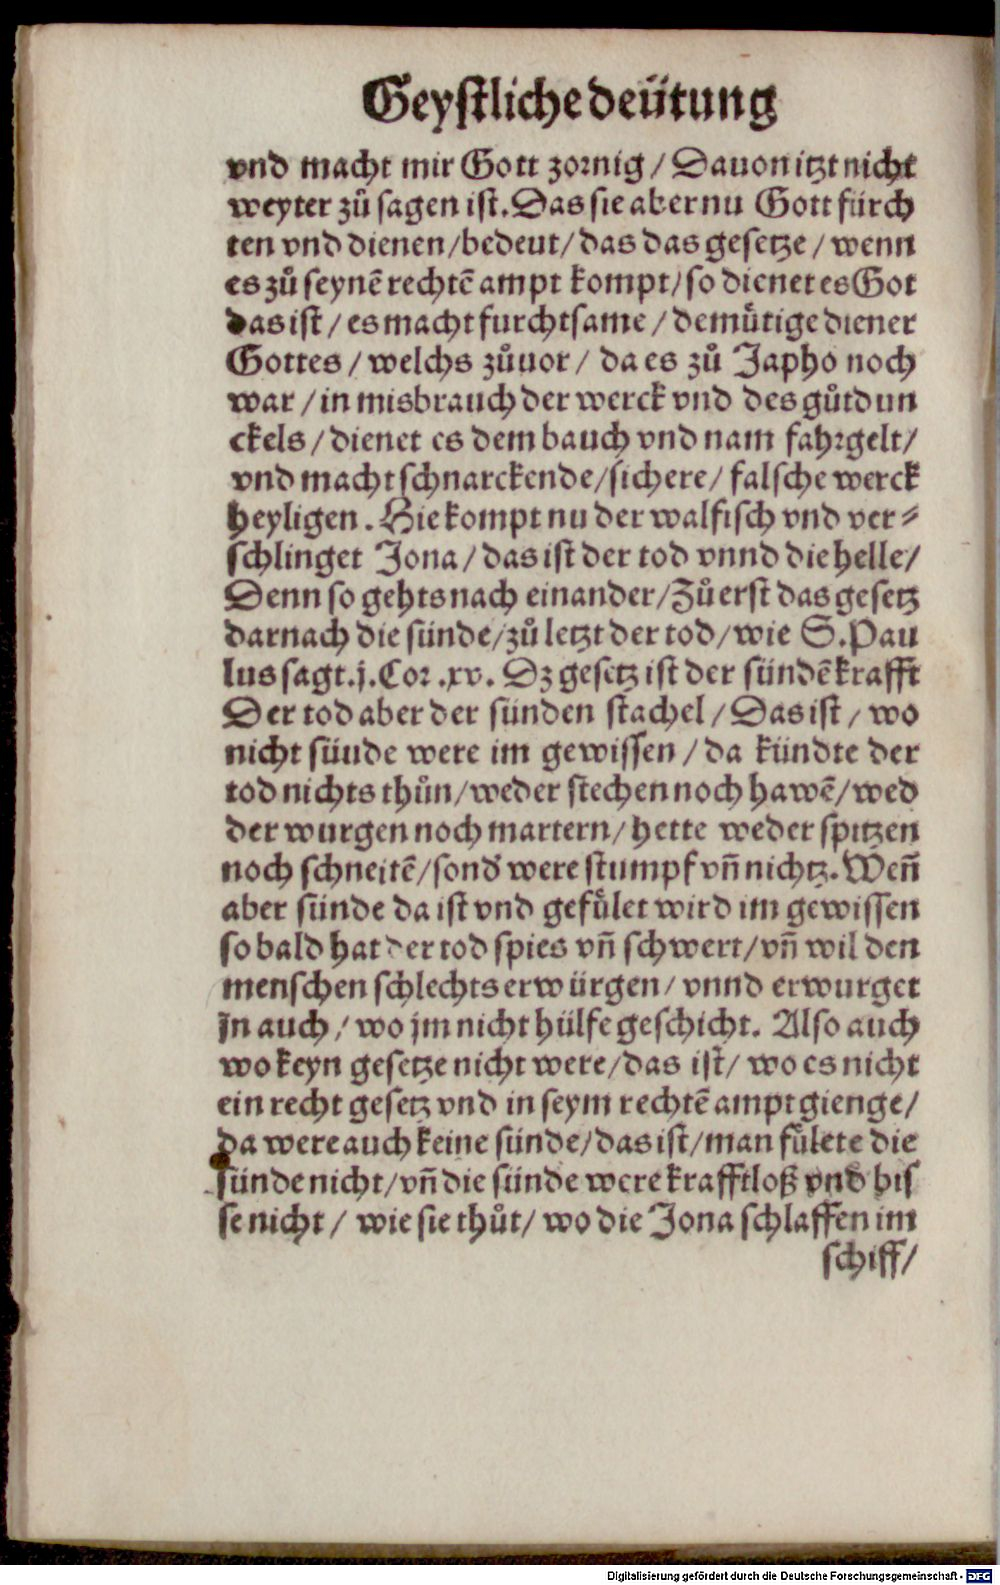 Geystliche deütung
vnd macht mir Gott zornig / Dauon itzt nicht
weyter zů sagen ist. Das sie aber nu Gott fürch
ten vnd dienen / bedeut / das das gesetze / wenn
es zů seynē rechtē ampt kompt / so dienet es Got
das ist / es macht furchtsame / demůtige diener
Gottes / welchs zůuor / da es zů Japho noch
war / in misbrauch der werck vnd des gůtdun
ckels / dienet es dem bauch vnd nam fahrgelt /
vnd macht schnarckende / sichere / falsche werck
heyligen . Hie kompt nu der walfisch vnd ver⸗
schlinget Jona / das ist der tod vnnd die helle /
Denn so gehts nach einander / Zů erst das gesetz
darnach die sünde / zů letzt der tod / wie S. Pau
lus sagt .j. Cor .xv. Dz gesetz ist der sündē krafft
Der tod aber der sünden stachel / Das ist / wo
nicht süude were im gewissen / da kündte der
tod nichts thůn / weder stechen noch hawē / wed
der wurgen noch martern / hette weder spitzen
noch schneitē / sond' were stumpf vn̄ nichtz. Wen̄
aber sünde da ist vnd gefůlet wird im gewissen
so bald hat der tod spies vn̄ schwert / vn̄ wil den
menschen schlechts erwürgen / vnnd erwurget
jn auch / wo jm nicht hülfe geschicht. Also auch
wo keyn gesetze nicht were / das ist / wo es nicht
ein recht gesetz vnd in seym rechtē ampt gienge /
da were auch keine sünde / das ist / man fůlete die
sünde nicht / vn̄ die sünde were krafftloß vnd bis
se nicht / wie sie thůt / wo die Jona schlaffen im
schiff /
Digitalisierung gefördert durch die Deutsche Forschungsgemeinschaft - DFG